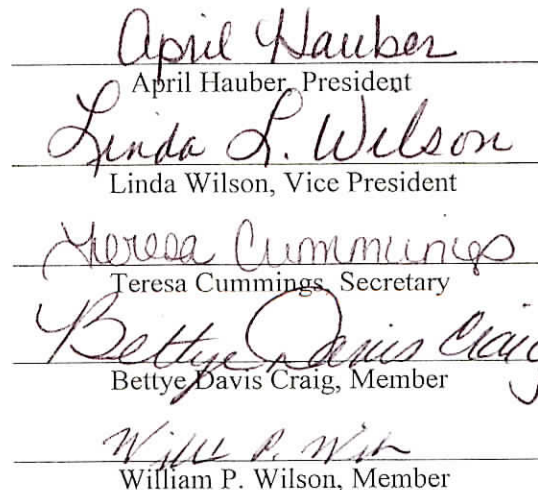 April Hauber
April Hauber, President
Linda L. Wilson
Linda Wilson, Vice President
Teresa Cummings
Teresa Cummings, Secretary
Bettye Davis Craig
Bettye Davis Craig, Member
Will P. Wil
William P. Wilson, Member